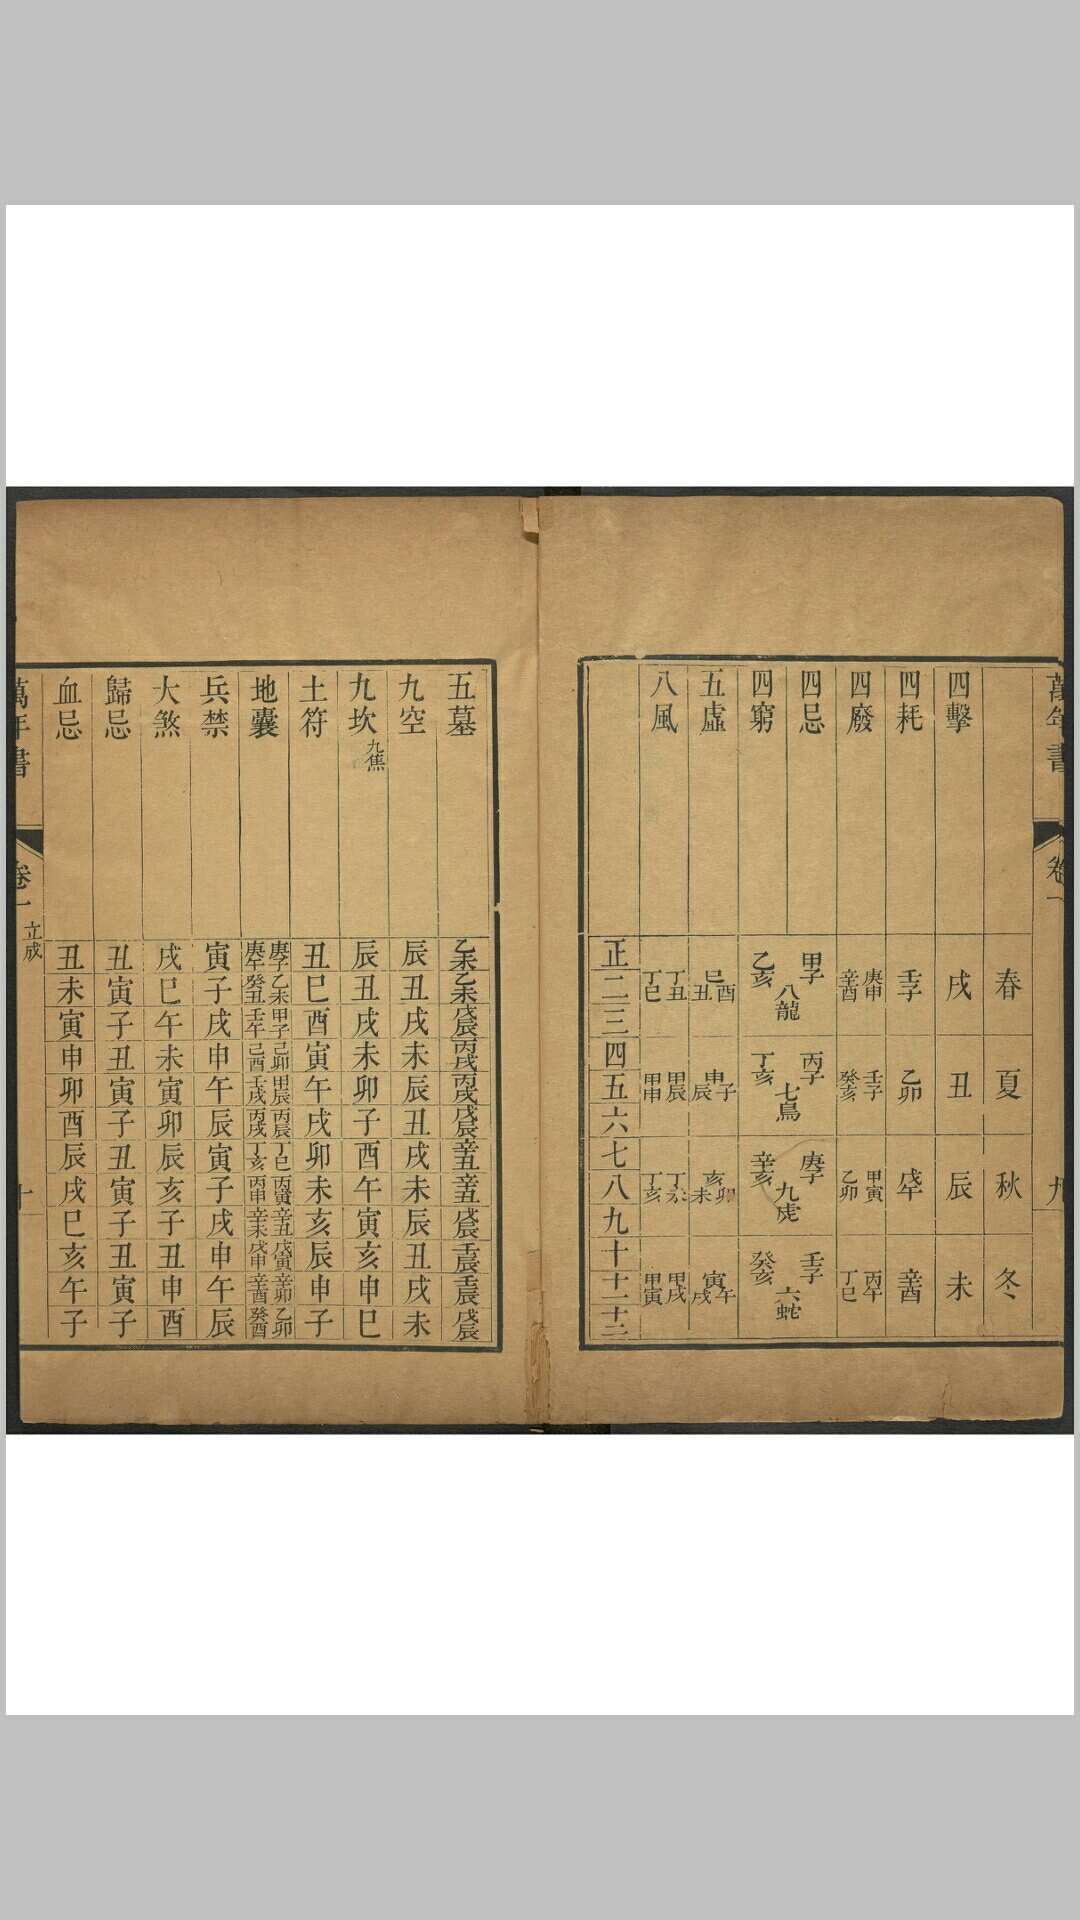 萬年書 卷一 九
春 夏 秋 冬
四擊 戌 丑 辰 未
四耗 壬子 乙卯 戊午 辛酉
四廢 庚申辛酉 壬子癸亥 甲寅乙卯 丙午丁巳
四忌 甲子 丙子 庚子 壬子
八龍 七鳥 九虎 六蛇
四窮 乙亥 丁亥 辛亥 癸亥
五虛 巳酉丑 申子辰 亥卯未 寅午戌
八風 丁丑丁巳 甲辰甲申 丁未丁亥 甲戌甲寅
正 二 三 四 五 六 七 八 九 十 十一 十二
五墓 乙未 乙未 戊辰 丙戌 丙戌 戊辰 辛丑 辛丑 戊辰 壬辰 壬辰 戊辰
九空 辰 丑 戌 未 辰 丑 戌 未 辰 丑 戌 未
九坎 九焦 辰 丑 戌 未 卯 子 酉 午 寅 亥 申 巳
土符 丑 巳 酉 寅 午 戌 卯 未 亥 辰 申 子
地囊 庚子庚午 乙未癸丑 甲子壬午 己卯己酉 甲辰壬戌 丙辰丙戌 丁巳丁亥 丙寅丙申 辛丑辛未 戊寅戊申 辛卯辛酉 乙卯癸酉
兵禁 寅 子 戌 申 午 辰 寅 子 戌 申 午 辰
大煞 戌 巳 午 未 寅 卯 辰 亥 子 丑 申 酉
歸忌 丑 寅 子 丑 寅 子 丑 寅 子 丑 寅 子
血忌 丑 未 寅 申 卯 酉 辰 戌 巳 亥 午 子
萬年書 卷一 立成 十